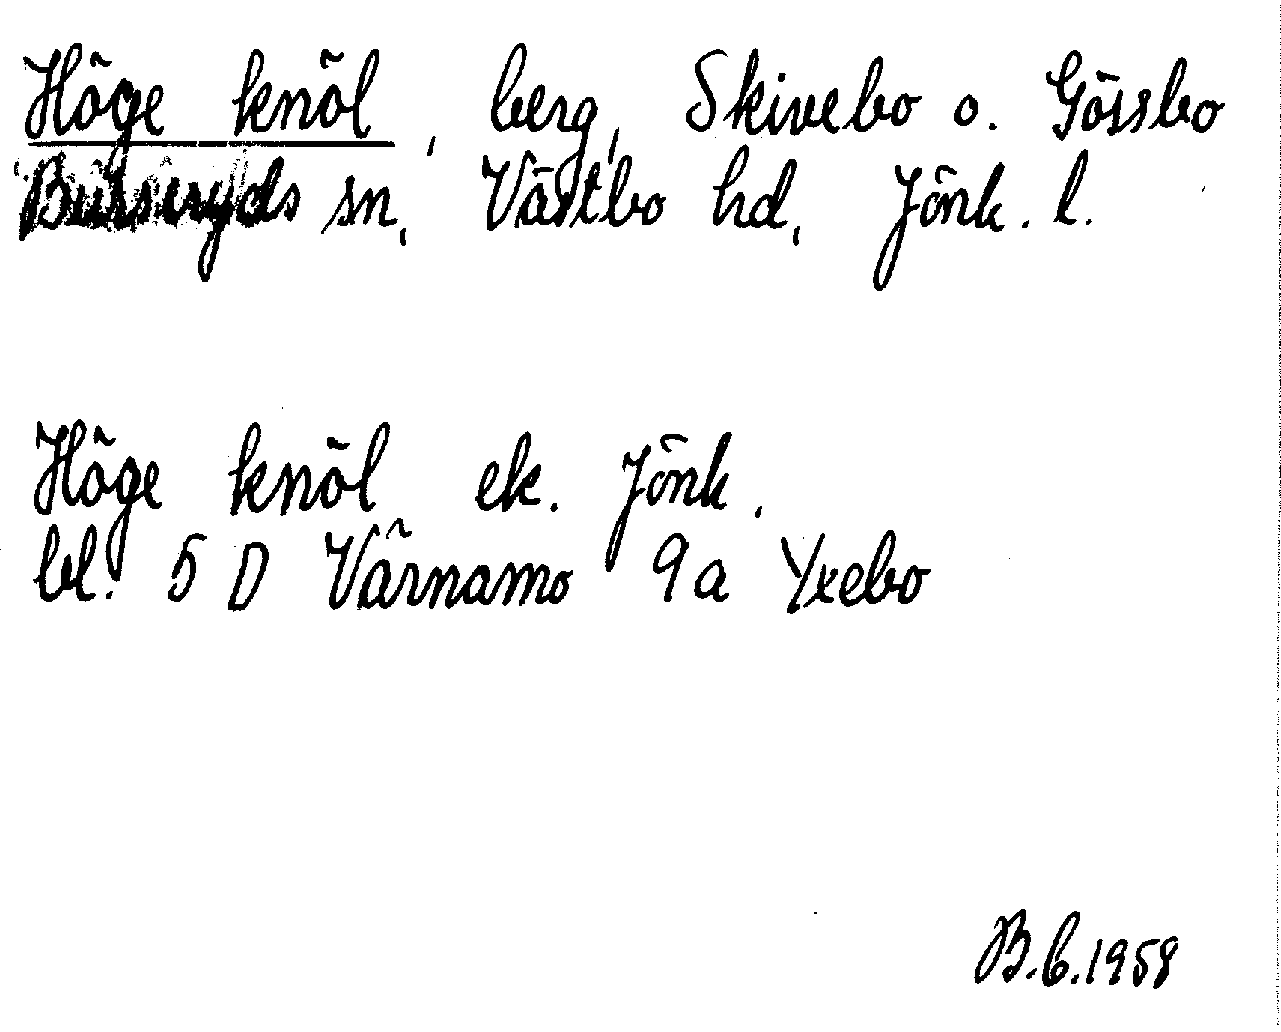 Höge knöl, berg, Skivebo o. Gössbo
Burseryds sn, Västbo hd, Jönk. l.
Höge knöl ek. Jönk.
bl. 5 D Värnamo 9a Yxebo
B.G.1958